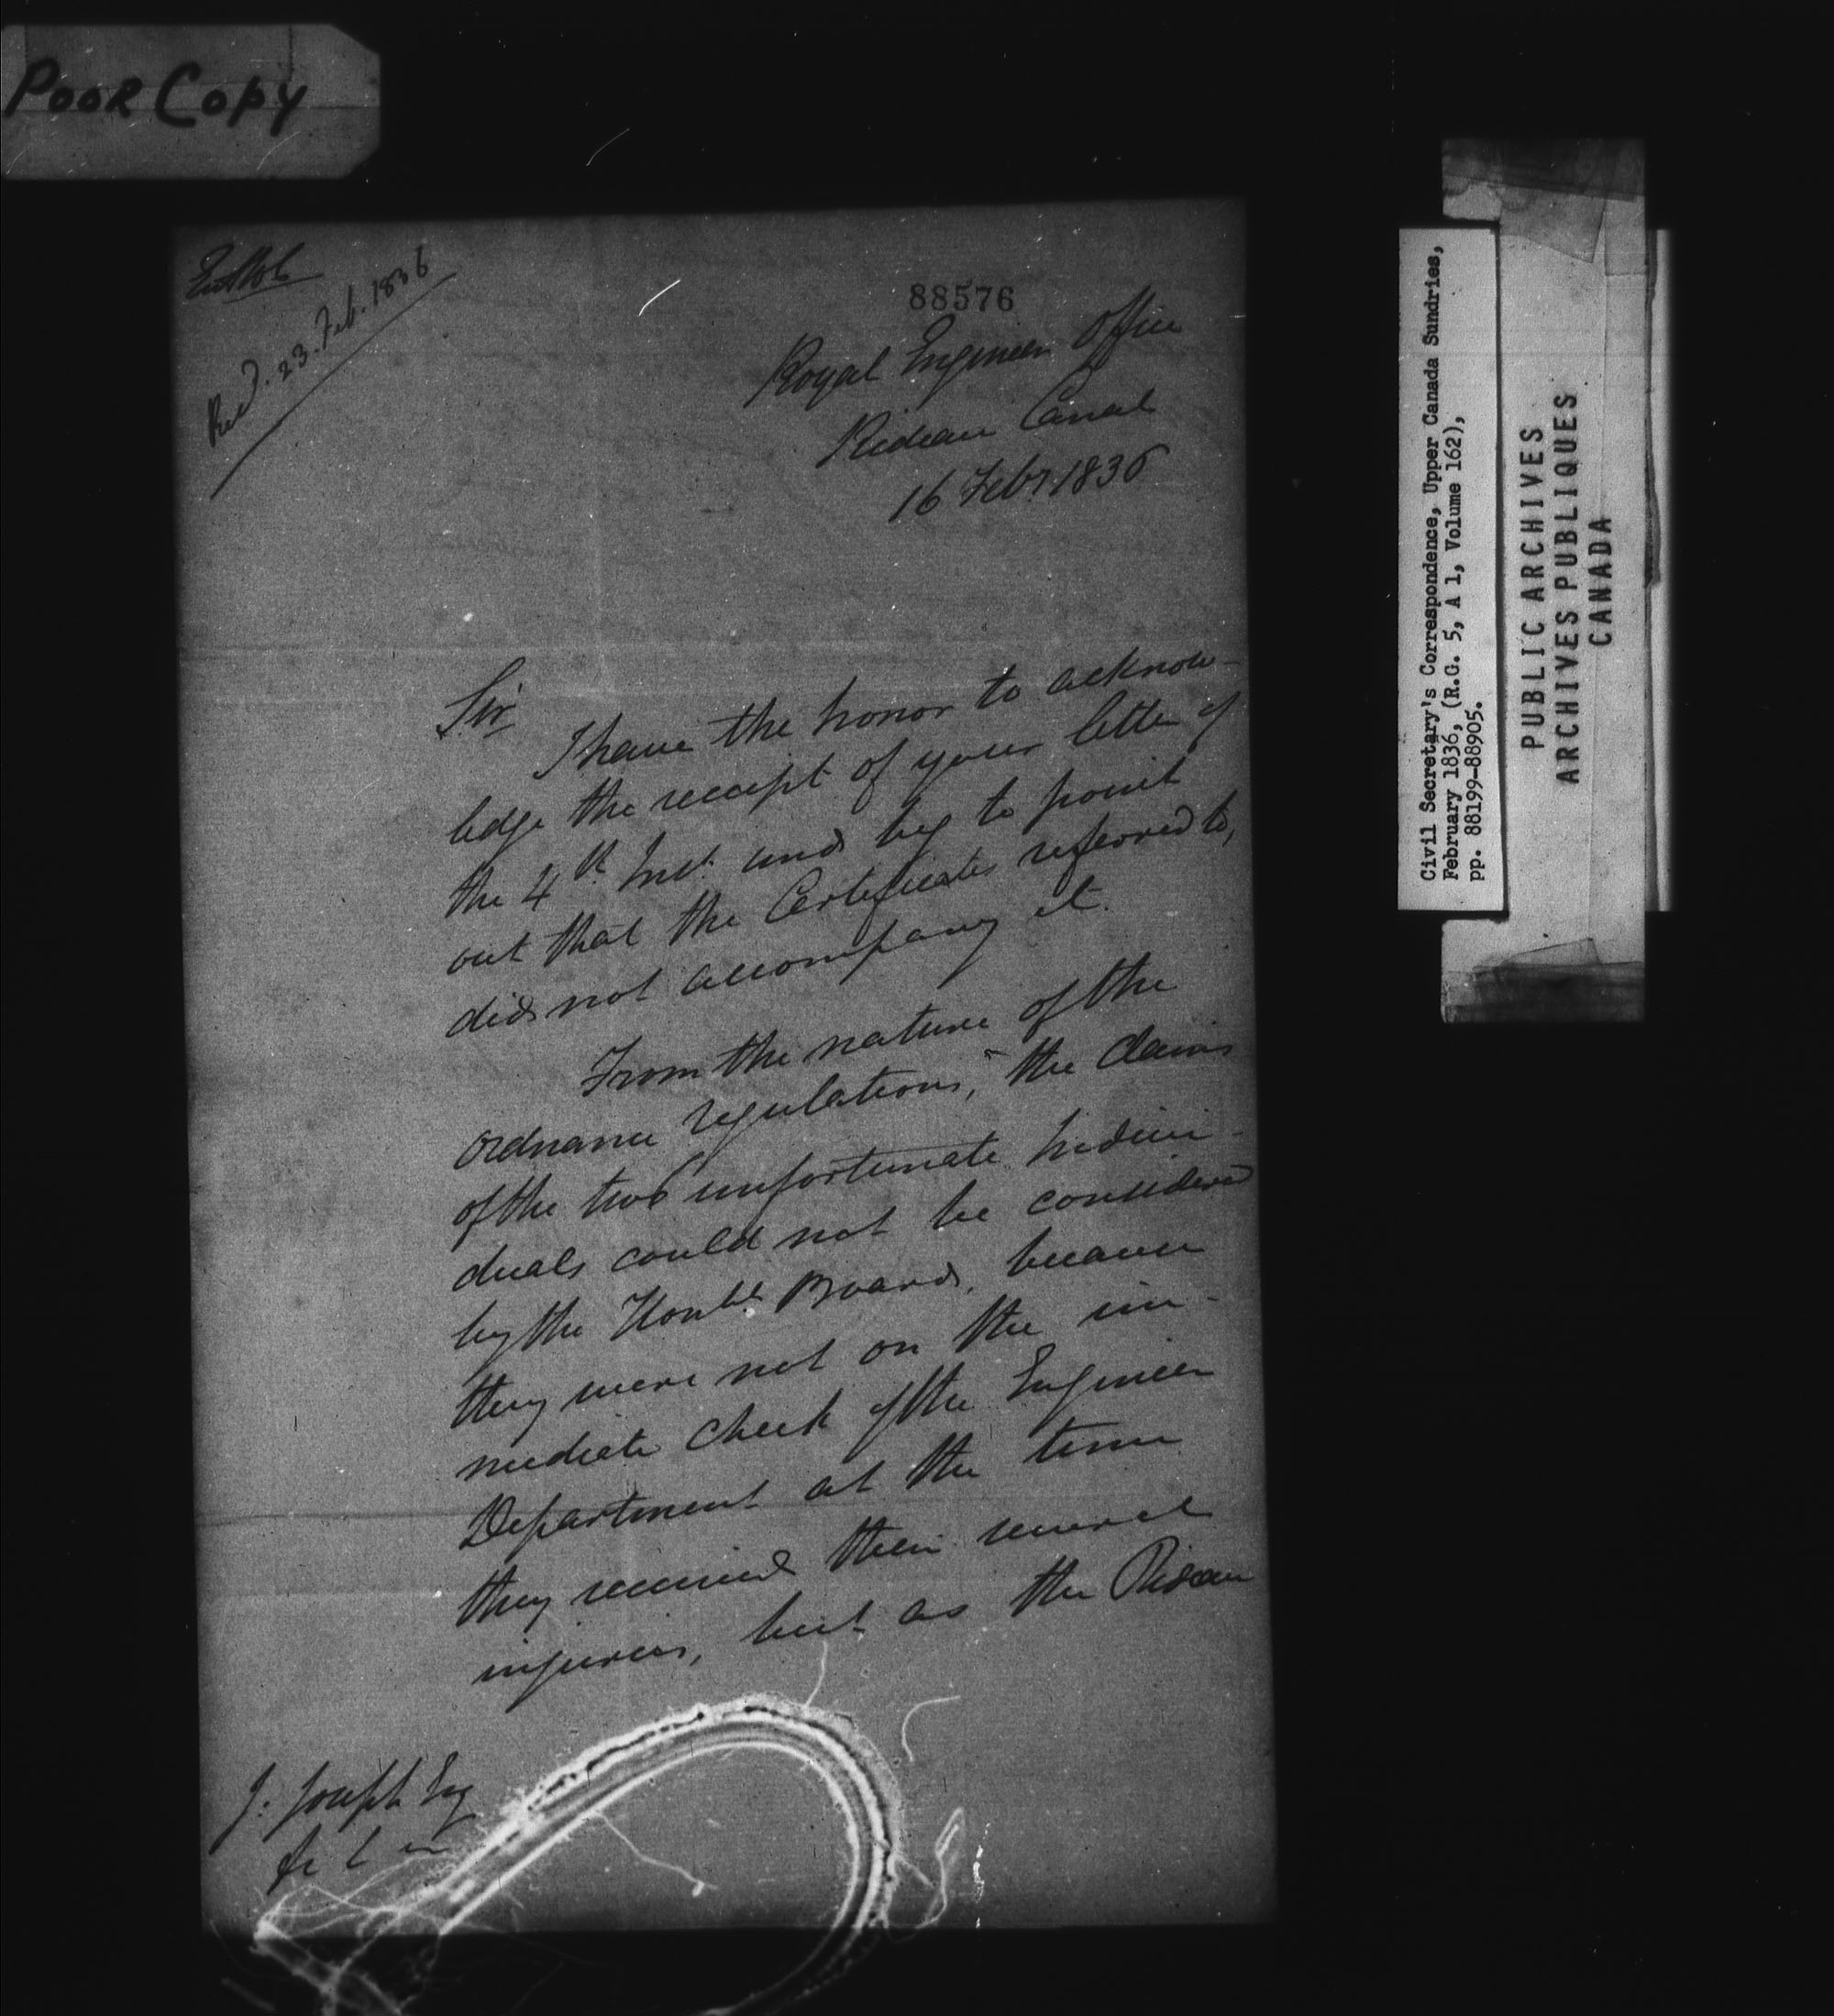 POOR COPY
Recd. 23. Feb. 1836
88576
Royal Engineer Office
Rideau Canal
16 Feby 1836
Sir
I have the honor to acknow-
ledge the receipt of your letter of
the 4th Inst. and beg to point
out that the Certificates referred to,
did not accompany it.
From the nature of the
Ordnance regulations, the claims
of the two unfortunate Indivi-
duals could not be considered
by the Honble Board, because
they were not on the im-
mediate check of the Engineer
Department at the time
they received their several
injuries, but as the Rideau
J. Joseph Esq
Civil Secretary's Correspondence, Upper Canada Sundries,
February 1836, (R.G. 5, A 1, Volume 162),
pp. 88199-88905.
PUBLIC ARCHIVES
ARCHIVES PUBLIQUES
CANADA